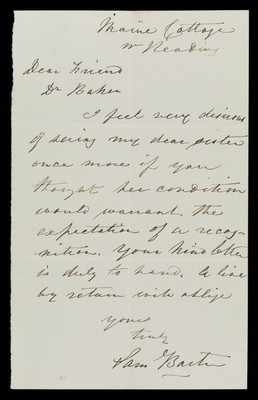 Maine Cottage
Nr Reading
Dear Friend
Dr Baker
I feel very desirous
of seeing my dear sister
once more if you
thought her condition
would warrant the
expectation of a recog-
nition. Your kind letter
is duly to hand. A line
by return will oblige
yours
truly
Sam